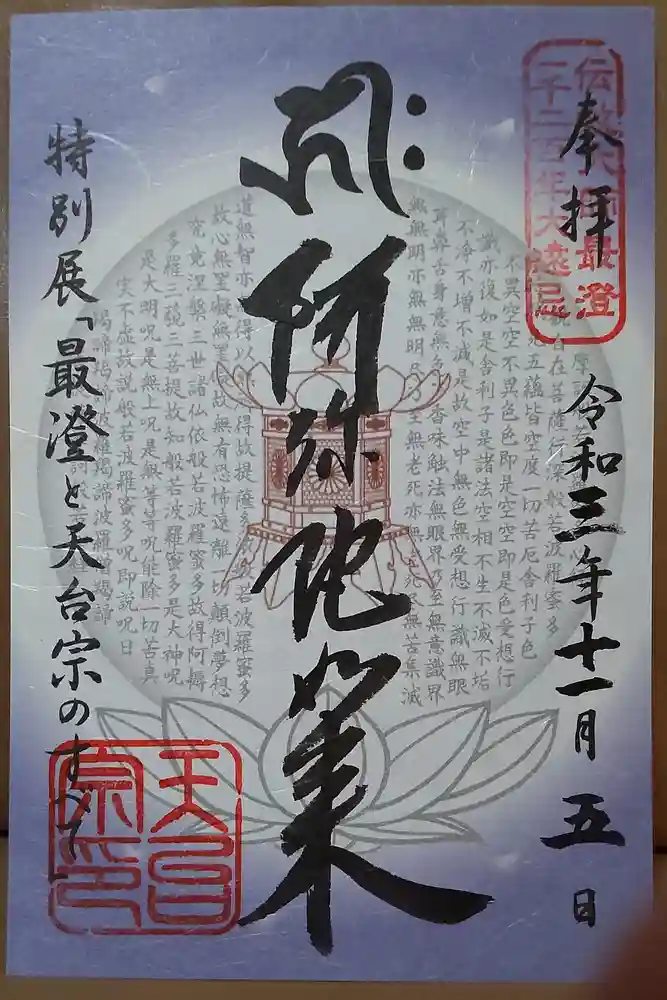 伝教大師最澄
一千二百年大遠忌
奉拝
令和三年十一月五日
自在菩薩行深般若波羅蜜多
五蘊皆空度一切苦厄舎利子色
不異空空不異色色即是空空即是色受想行
識亦復如是舎利子是諸法空相不生不滅不垢
不浄不増不減是故空中無色無受想行識無眼
耳鼻舌身意無色声香味触法無眼界乃至無意識界
無無明亦無無明尽乃至無老死亦無老死尽無苦集滅
ह्रीः
阿弥陀如来
道無智亦無得以無所得故菩提薩埵依般若波羅蜜多
故心無罣礙無罣礙故無有恐怖遠離一切顛倒夢想
究竟涅槃三世諸仏依般若波羅蜜多故得阿耨
多羅三藐三菩提故知般若波羅蜜多是大神呪
是大明呪是無上呪是無等等呪能除一切苦真
実不虚故説般若波羅蜜多呪即説呪曰
羯諦羯諦波羅羯諦波羅僧羯諦
特別展「最澄と天台宗のすべて」
天台宗印